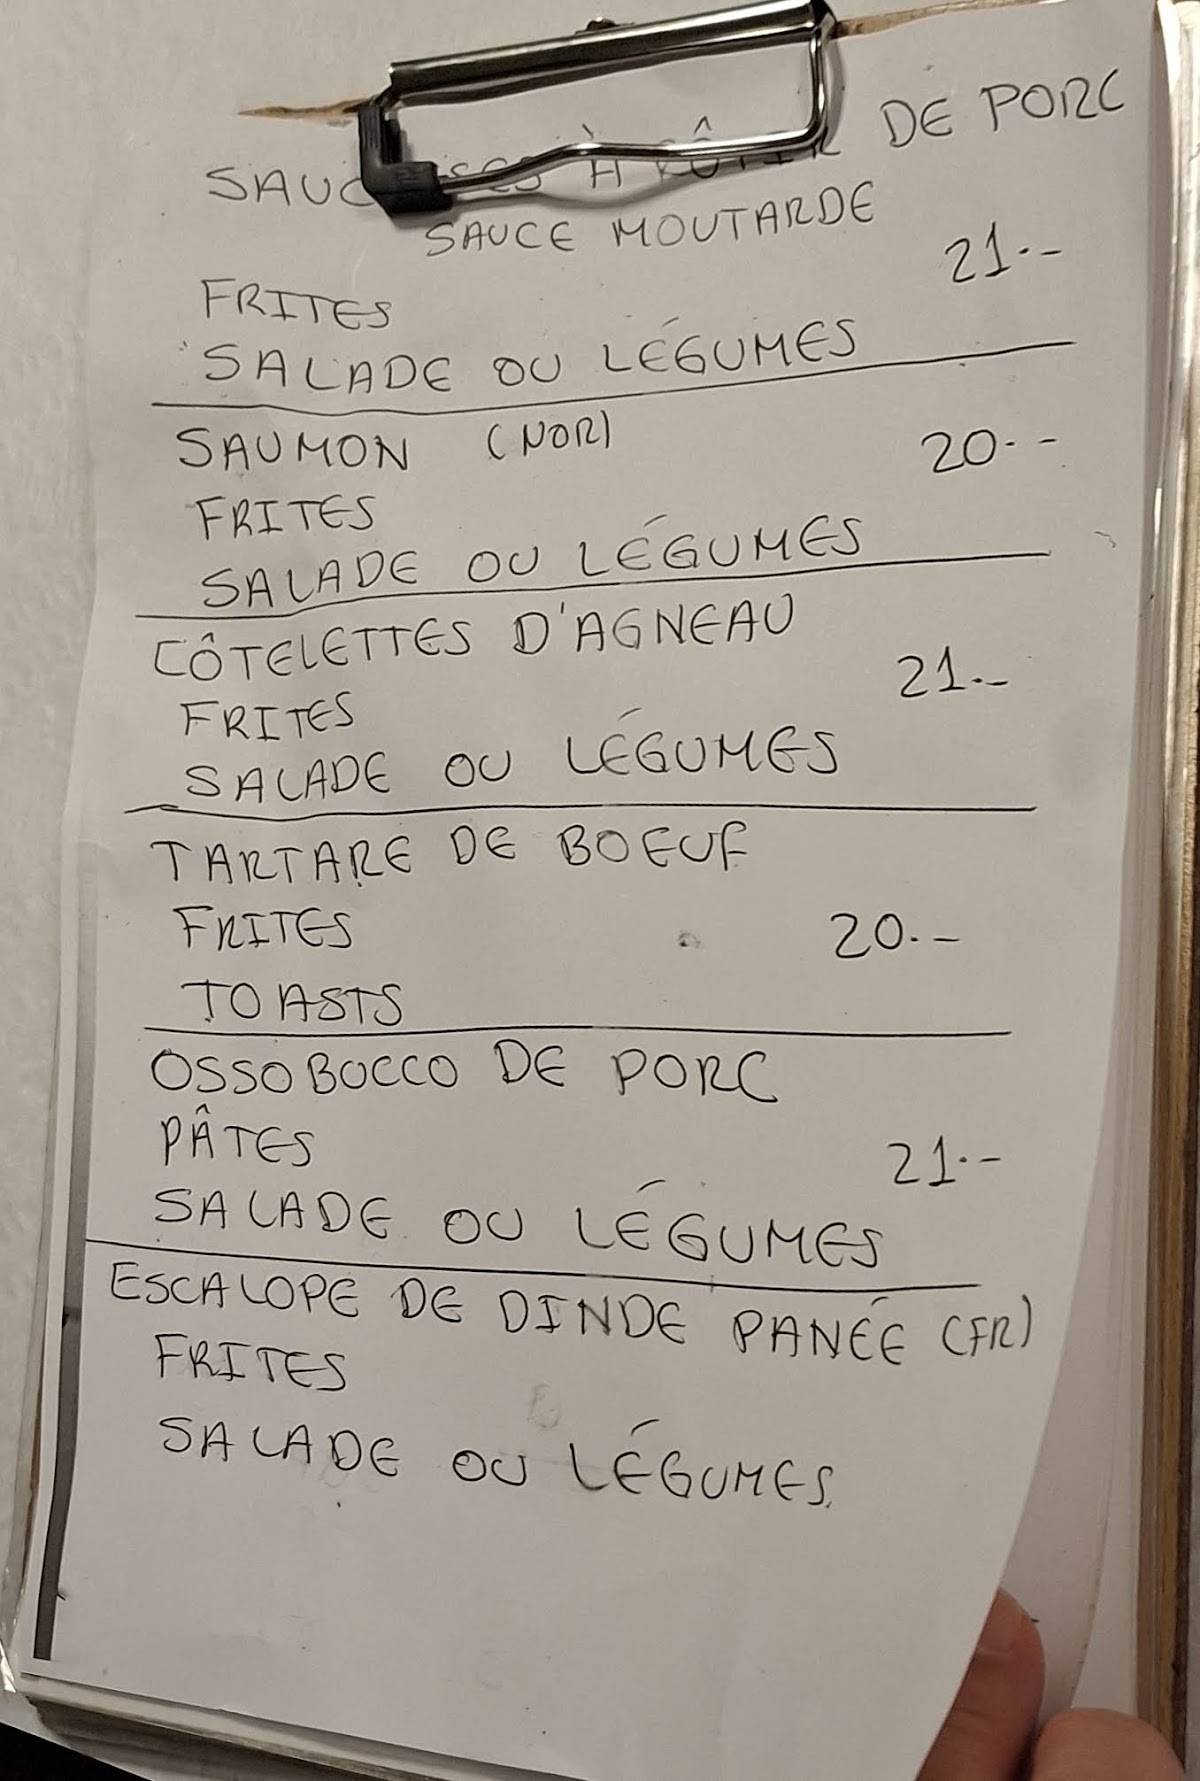 SAUCISSES À RÔTIR DE PORC
SAUCE MOUTARDE
21.-
FRITES
SALADE OU LÉGUMES
SAUMON (NOR)
20.-
FRITES
SALADE OU LÉGUMES
CÔTELETTES D'AGNEAU
21.-
FRITES
SALADE OU LÉGUMES
TARTARE DE BOEUF
FRITES 20.-
TOASTS
OSSOBOCCO DE PORC
PÂTES 21.-
SALADE OU LÉGUMES
ESCALOPE DE DINDE PANÉE (FR)
FRITES
SALADE OU LÉGUMES